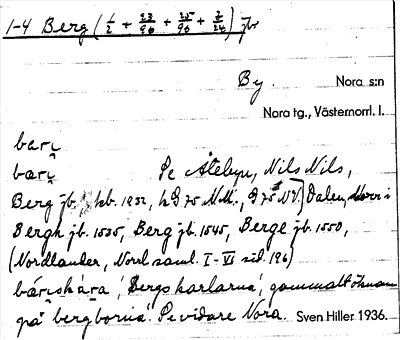 1-4 Berg (1/2 + 23/96 + 25/96 + 2/24) jbr
By. Nora s:n
Nora tg., Västernorrl. l.
bari̯
bæri̯ Se Åtebyn, Nils Nils,
Berg jb., kb. 1932, Dalen, Norr i
Bergh jb. 1535, Berg jb. 1545, Berge jb. 1550,
(Nordlander, Norrl. saml. I-VI sid. 196)
bári̯skára, 'Bergskarlarna', gammalt öknamn
på bergborna. Se vidare Nora. Sven Hiller 1936.